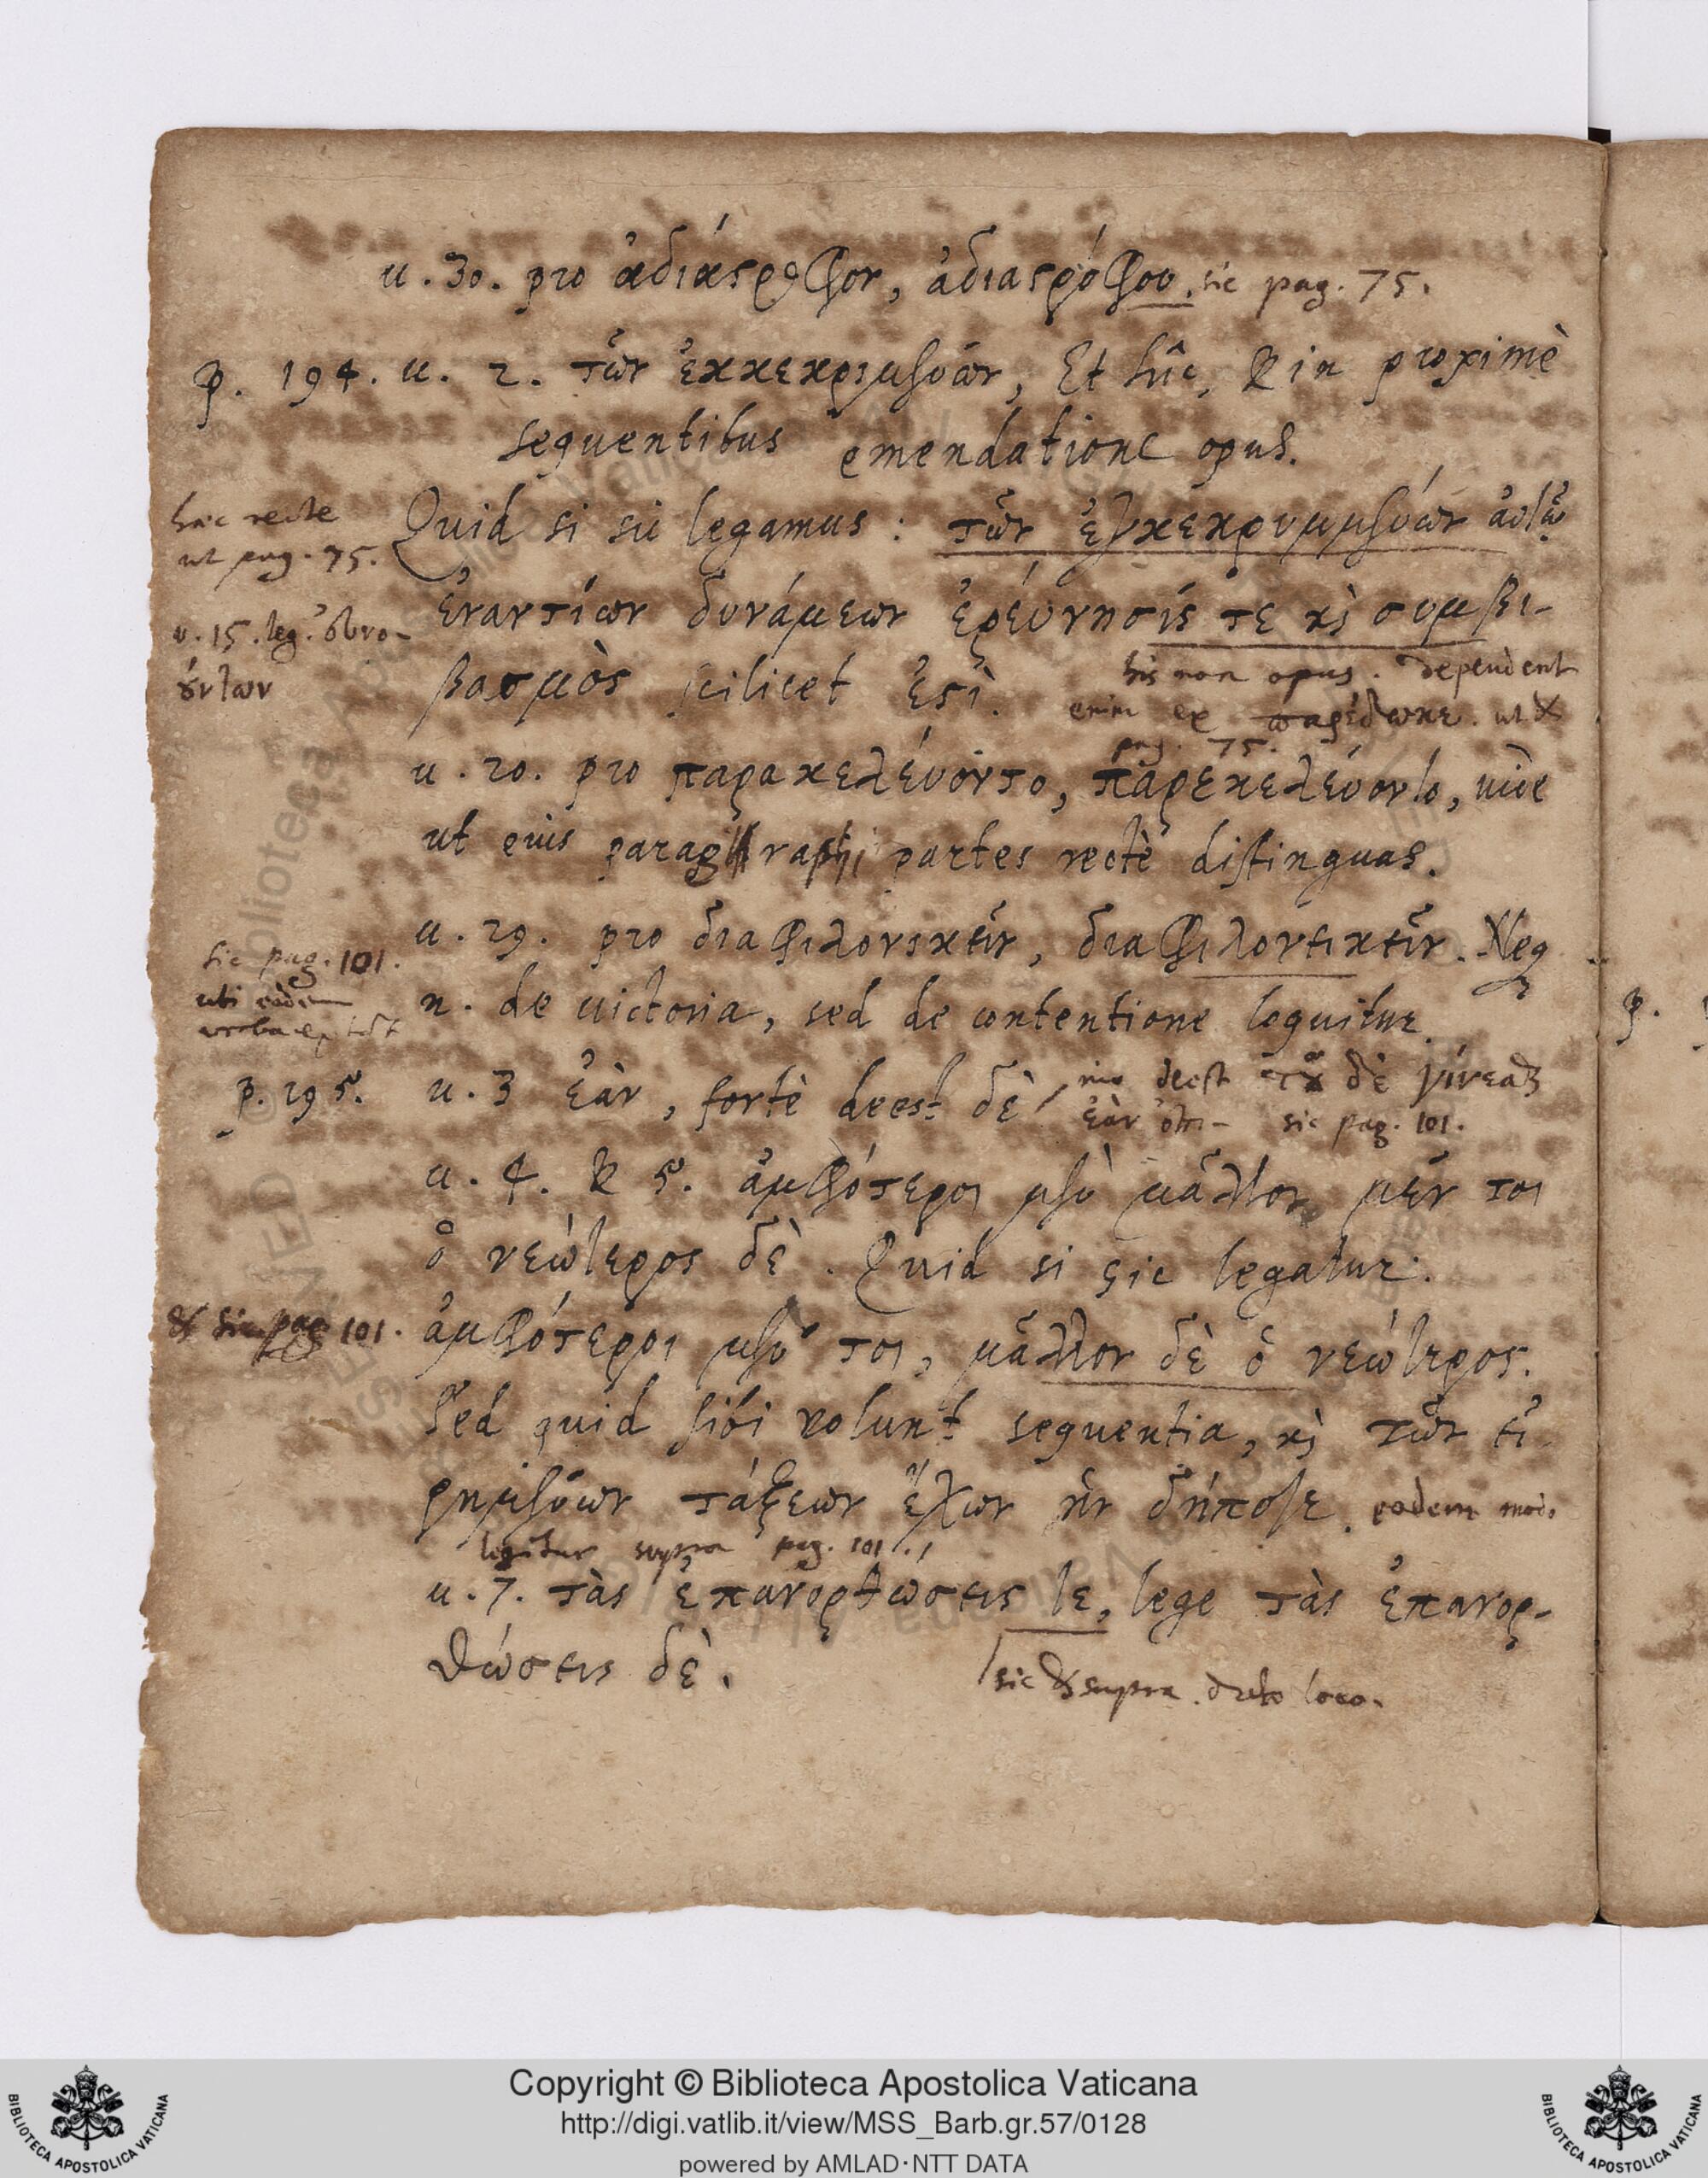 u. 30. pro ἀδιάστροφον, ἀδιαστρόφου. sic pag. 75.
p. 194. u. 2. τῶν ἐκκεκριμένων, Et hîc, & in proximè
sequentibus emendatione opus.
haec recte
ut pag. 75.
Quid si sic legamus: τῶν ἐγκεκρυμμένων αὐτῷ
ἐναντίων δυνάμεων ἐρεύνησίς τε καὶ συμβι-
v. 15. leg.
βασμὸς scilicet ἐστὶ.
his non opus. dependent
enim ex παρέδωκε. ut &
pag. 75.
u. 20. pro παρακελέυοντο, παρεκελέυοντο, vide
ut eius paragraphi partes rectè distinguas.
u. 29. pro διαφιλονικεῖν, διαφιλοντικεῖν. Neq
n. de victoria, sed de contentione loquitur.
sic pag. 101.
ubi eadem
p. 195. u. 3 ἐὰν, fortè deest δὲ
imo deest δὲ γίνεται
ἐὰν sic pag. 101.
u. 4. & 5. ἀμφότεροι μὲν μᾶλλον μέν τοι
ὁ νεώτερος δὲ. Quid si sic legatur:
& sic pag 101.
ἀμφότεροι μέν τοι, μᾶλλον δὲ ὁ νεώτερος.
Sed quid sibi volunt sequentia, καὶ τῶν εἰ-
ρημένων τάξεων ἔχων ἣν δήποτε. eodem modo
legitur supra pag. 101.
u. 7. τὰς ἐπανορθώσεις τε, lege τὰς ἐπανορ-
θώσεις δὲ.
sic & supra. dicto loco.
p.
Copyright © Biblioteca Apostolica Vaticana
http://digi.vatlib.it/view/MSS_Barb.gr.57/0128
powered by AMLAD·NTT DATA
BIBLIOTECA APOSTOLICA VATICANA
BIBLIOTECA APOSTOLICA VATICANA